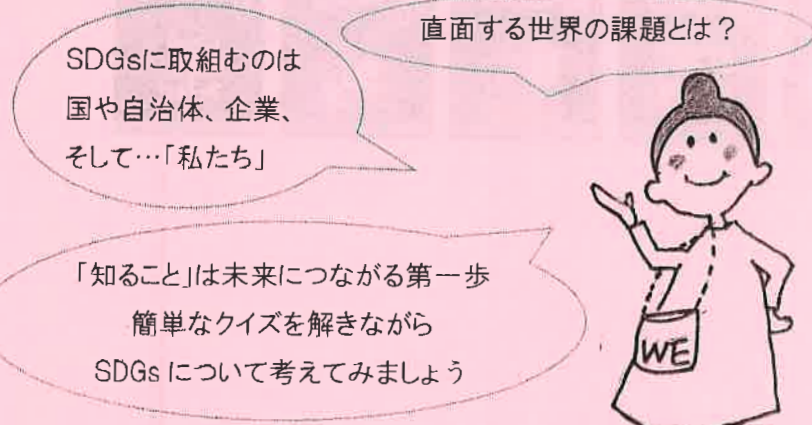 直面する世界の課題とは？
SDGsに取組むのは
国や自治体、企業、
そして…「私たち」
「知ること」は未来につながる第一歩
簡単なクイズを解きながら
SDGs について考えてみましょう
WE